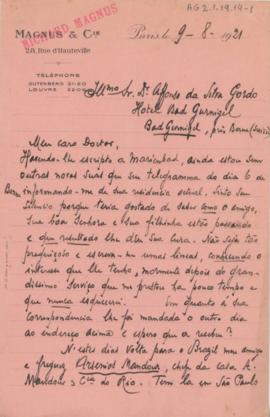 AG.2.1.19.14-1
MAGNUS & Cie
RICHARD MAGNUS
28, Rue d'Hauteville
Paris le 9-8-1921
TÉLÉPHONE
GUTENBERG
LOUVRE
Illmo Sr. Dr. Affonso da Silva Gordo
Hotel Bad Gurnigel
Bad Gurnigel, près Berne (Suisse)
Meu caro Doutor,
Havendo-lhe escripto a Marienbad, ainda estou sem
outras novas suas que seu telegramma do dia 6 de
Bern informando-me da sua residencia actual. Sinto seu
silencio porque teria gostado de saber como o amigo,
sua boa Senhora e sua filhinha estão passando
e que resultado lhe deu sua cura. Não seja tão
preguiçoso e escreva-me umas linhas, conhecendo o
interesse que lhe tenho, mormente depois do gran-
dissimo serviço que me prestou ha pouco tempo e
que nunca esquecerei. Em quanto à sua
correspondencia lhe foi mandada o outro dia
ao endereço acima e espero que a recebeu?
N'estes dias volta para o Brazil meu amigo
e freguez Arsenios Mandour, chef da casa A.
Mandour & Cia do Rio. Tem la em São Paulo